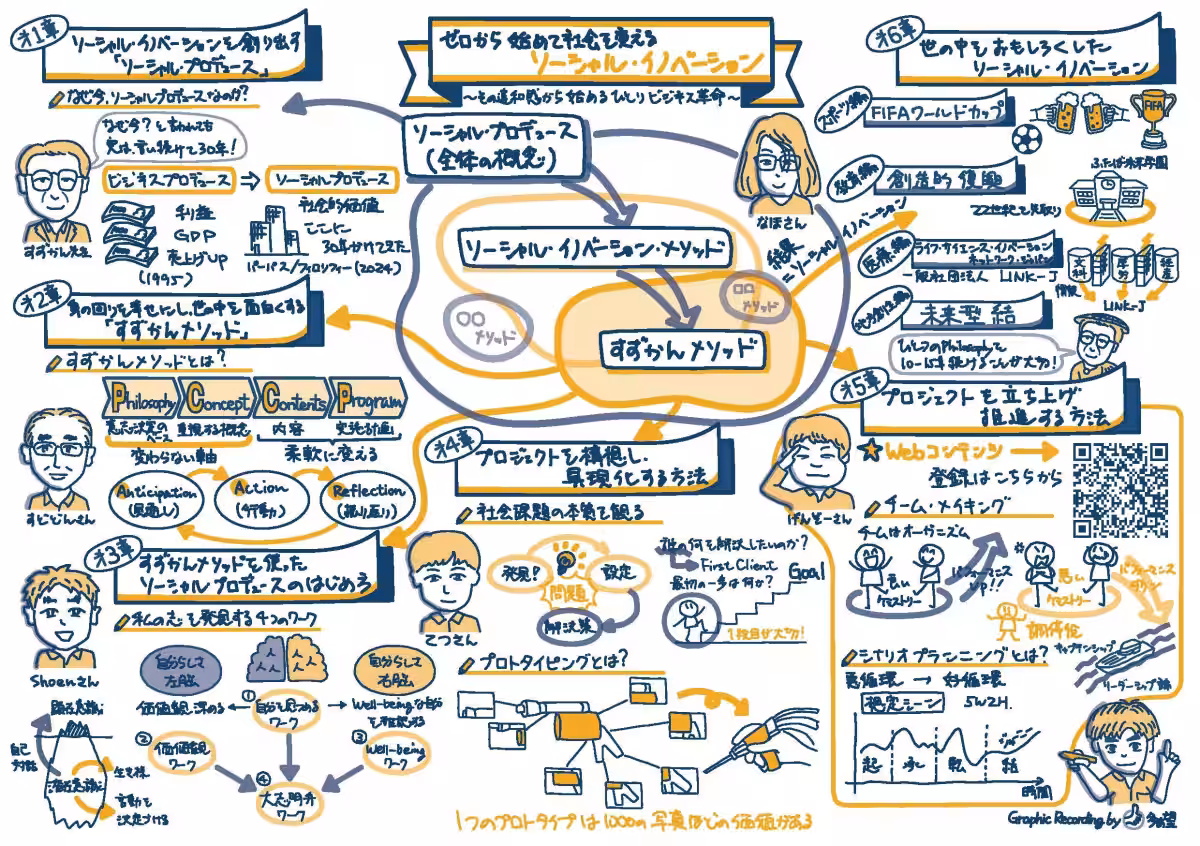 ゼロから始めて社会を変える
ソーシャル・イノベーション
〜その違和感から始めるひとりビジネス革命〜
ソーシャル・プロデュース
(全体の概念)
なほさん
ソーシャル・イノベーション・メソッド
結果
=ソーシャル・イノベーション
○○
メソッド
□□
メソッド
すずかんメソッド
第1章
ソーシャル・イノベーションを創り出す
「ソーシャル・プロデュース」
なぜ今、ソーシャルプロデュースなのか?
なぜ今?と言われても
実は、言い続けて30年!
すずかん先生
ビジネスプロデュース
ソーシャルプロデュース
利益
GDP
売上げUP
(1995)
社会的価値
ここに
30年かけて見た
パーパス/フィロソフィー(2024)
第2章
身の回りを幸せにし、世の中を面白くする
「すずかんメソッド」
すずかんメソッドとは?
Philosophy
Concept
Contents
Program
意志決定の
ベース
重視する概念
内容
実施計画
変わらない軸
柔軟に変える
すどどんさん
Anticipation
(見通し)
Action
(行動)
Reflection
(振り返り)
第3章
すずかんメソッドを使った
ソーシャルプロデュースのはじめかた
私の志を発見する4つのワーク
Shoenさん
自分らしさ
左脳
自分らしさ
右脳
価値観深める
①
自分を見つめる
ワーク
Well-beingな自分
②
価値観
ワーク
③
Well-being
ワーク
④
大志明弁
ワーク
顕在意識
自己
対話
潜在意識
生き様
言動を
決定づける
第4章
プロジェクトを構想し、
具現化する方法
社会課題の本質を観る
てつさん
発見!
設定
問題
解決策
誰の何を解決したいのか?
First Client
最初の一歩は何か?
Goal
1段目が大切!
プロトタイピングとは?
1つのプロトタイプは1000の写真ほどの価値がある
第6章
世の中をおもしろくした
ソーシャル・イノベーション
スポーツ編
FIFAワールドカップ
FIFA
教育編
創造的復興
ふたば未来学園
22世紀を先取り
医療編
ライフ・サイエンス・イノベーション
ネットワーク・ジャパン
一般社団法人 LINK-J
文科
厚労
経産
情報
LINK-J
地方創生編
未来型結
ひとつのPhilosophyで
10〜15年続けることが大切!
第5章
プロジェクトを立ち上げ
推進する方法
げんぞーさん
Webコンテンツ
登録はこちらから
チーム・メイキング
チームはオーガニズム
良い
ケミストリー
パフォーマンス
UP!!
悪い
ケミストリー
パフォーマンス
ダウン
調停役
キャプテンシップ
リーダーシップ
シナリオプランニングとは?
悪循環 → 好循環
想定シーン
5W2H
起
承
転
結
時間
Graphic Recording by